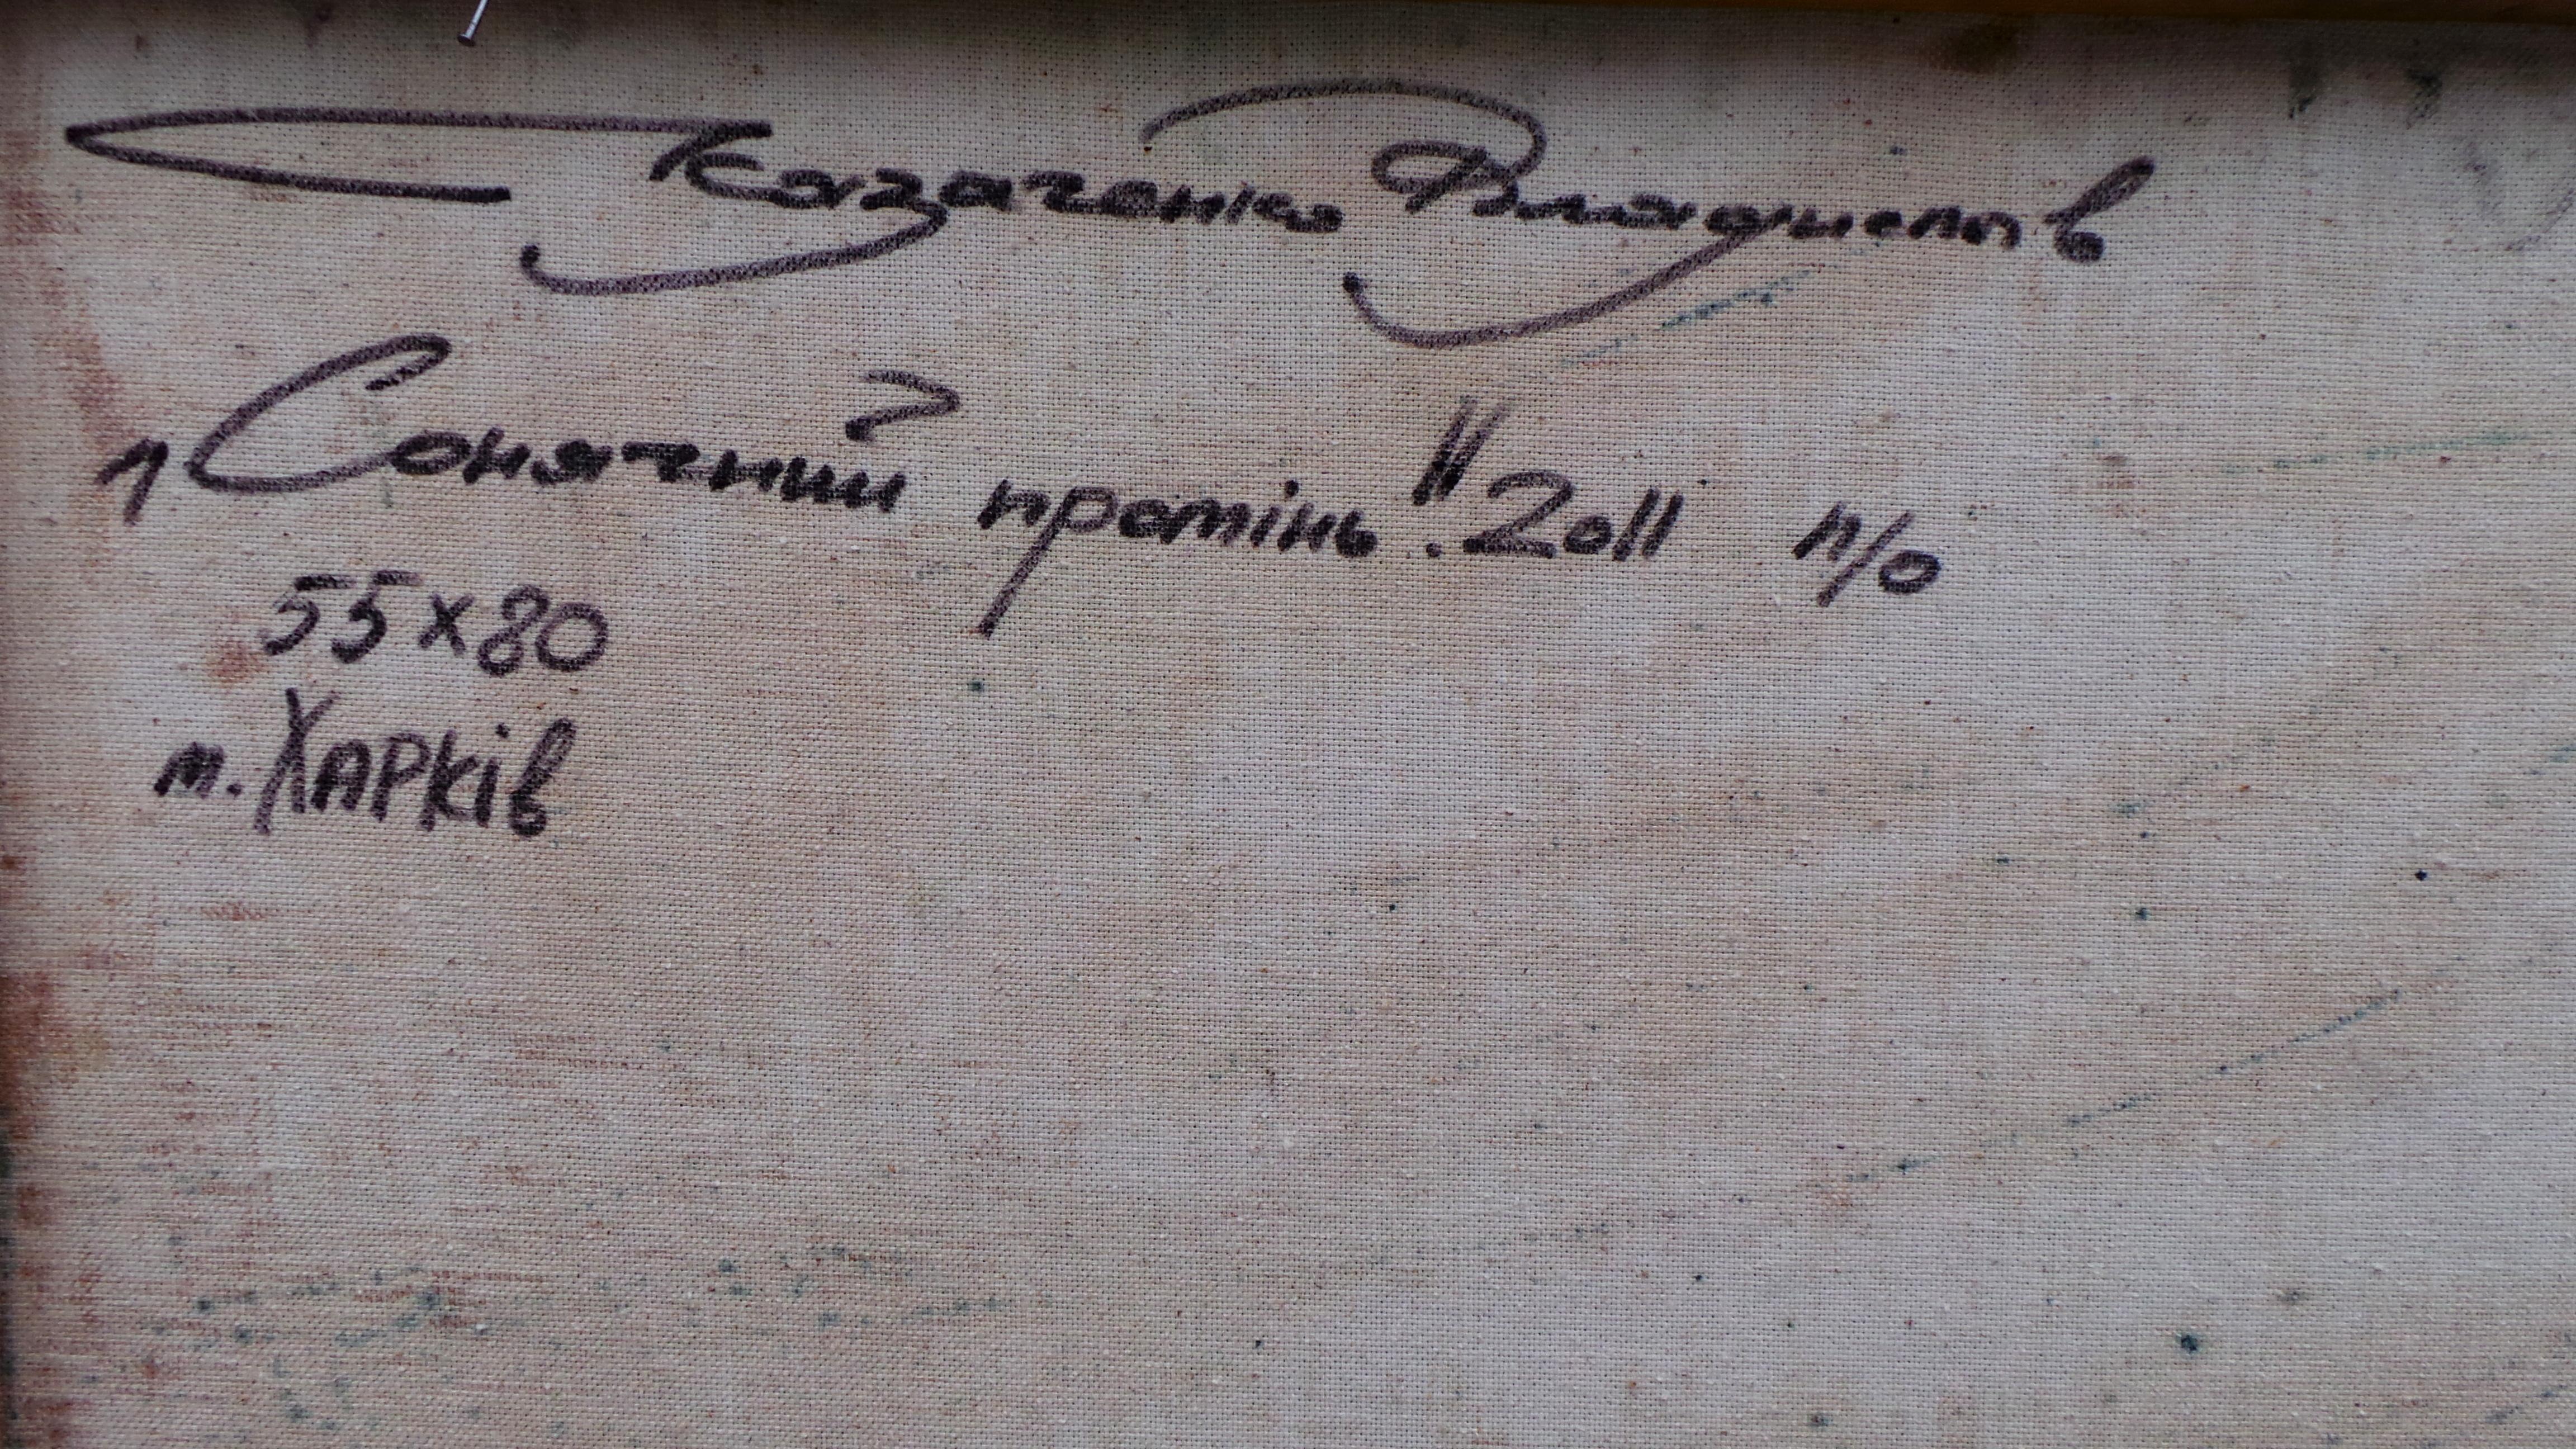 Казаченко Владислав
"Сонячний промінь". 2011 п/о
55х80
м. Харків